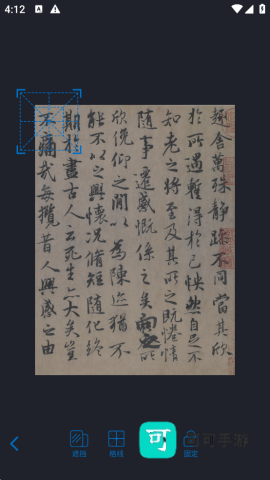 4:12
趣舍萬殊靜躁不同當其欣
於所遇暫得於己怏然自足不
知老之將至及其所之既惓情
隨事遷感慨係之矣向之所
欣俛仰之間以為陳迹猶不
能不以之興懷況脩短隨化終
期於盡古人云死生亦大矣豈
不痛哉每攬昔人興感之由
格线
可
固定
可手游